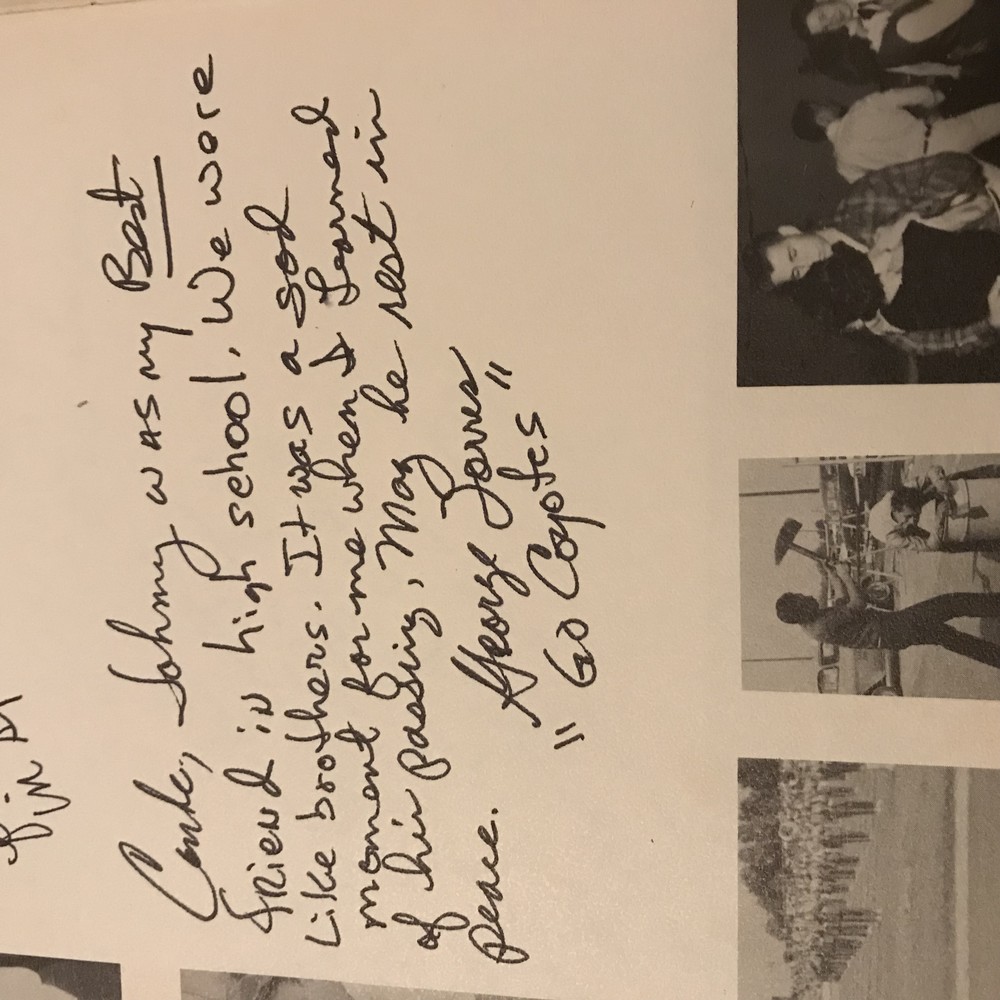 Johnny was my Best
friend in high school. We were
Like brothers. It was a sad
moment for me when I learned
of his passing, May he rest in
peace.
George Torres
"Go Coyotes"